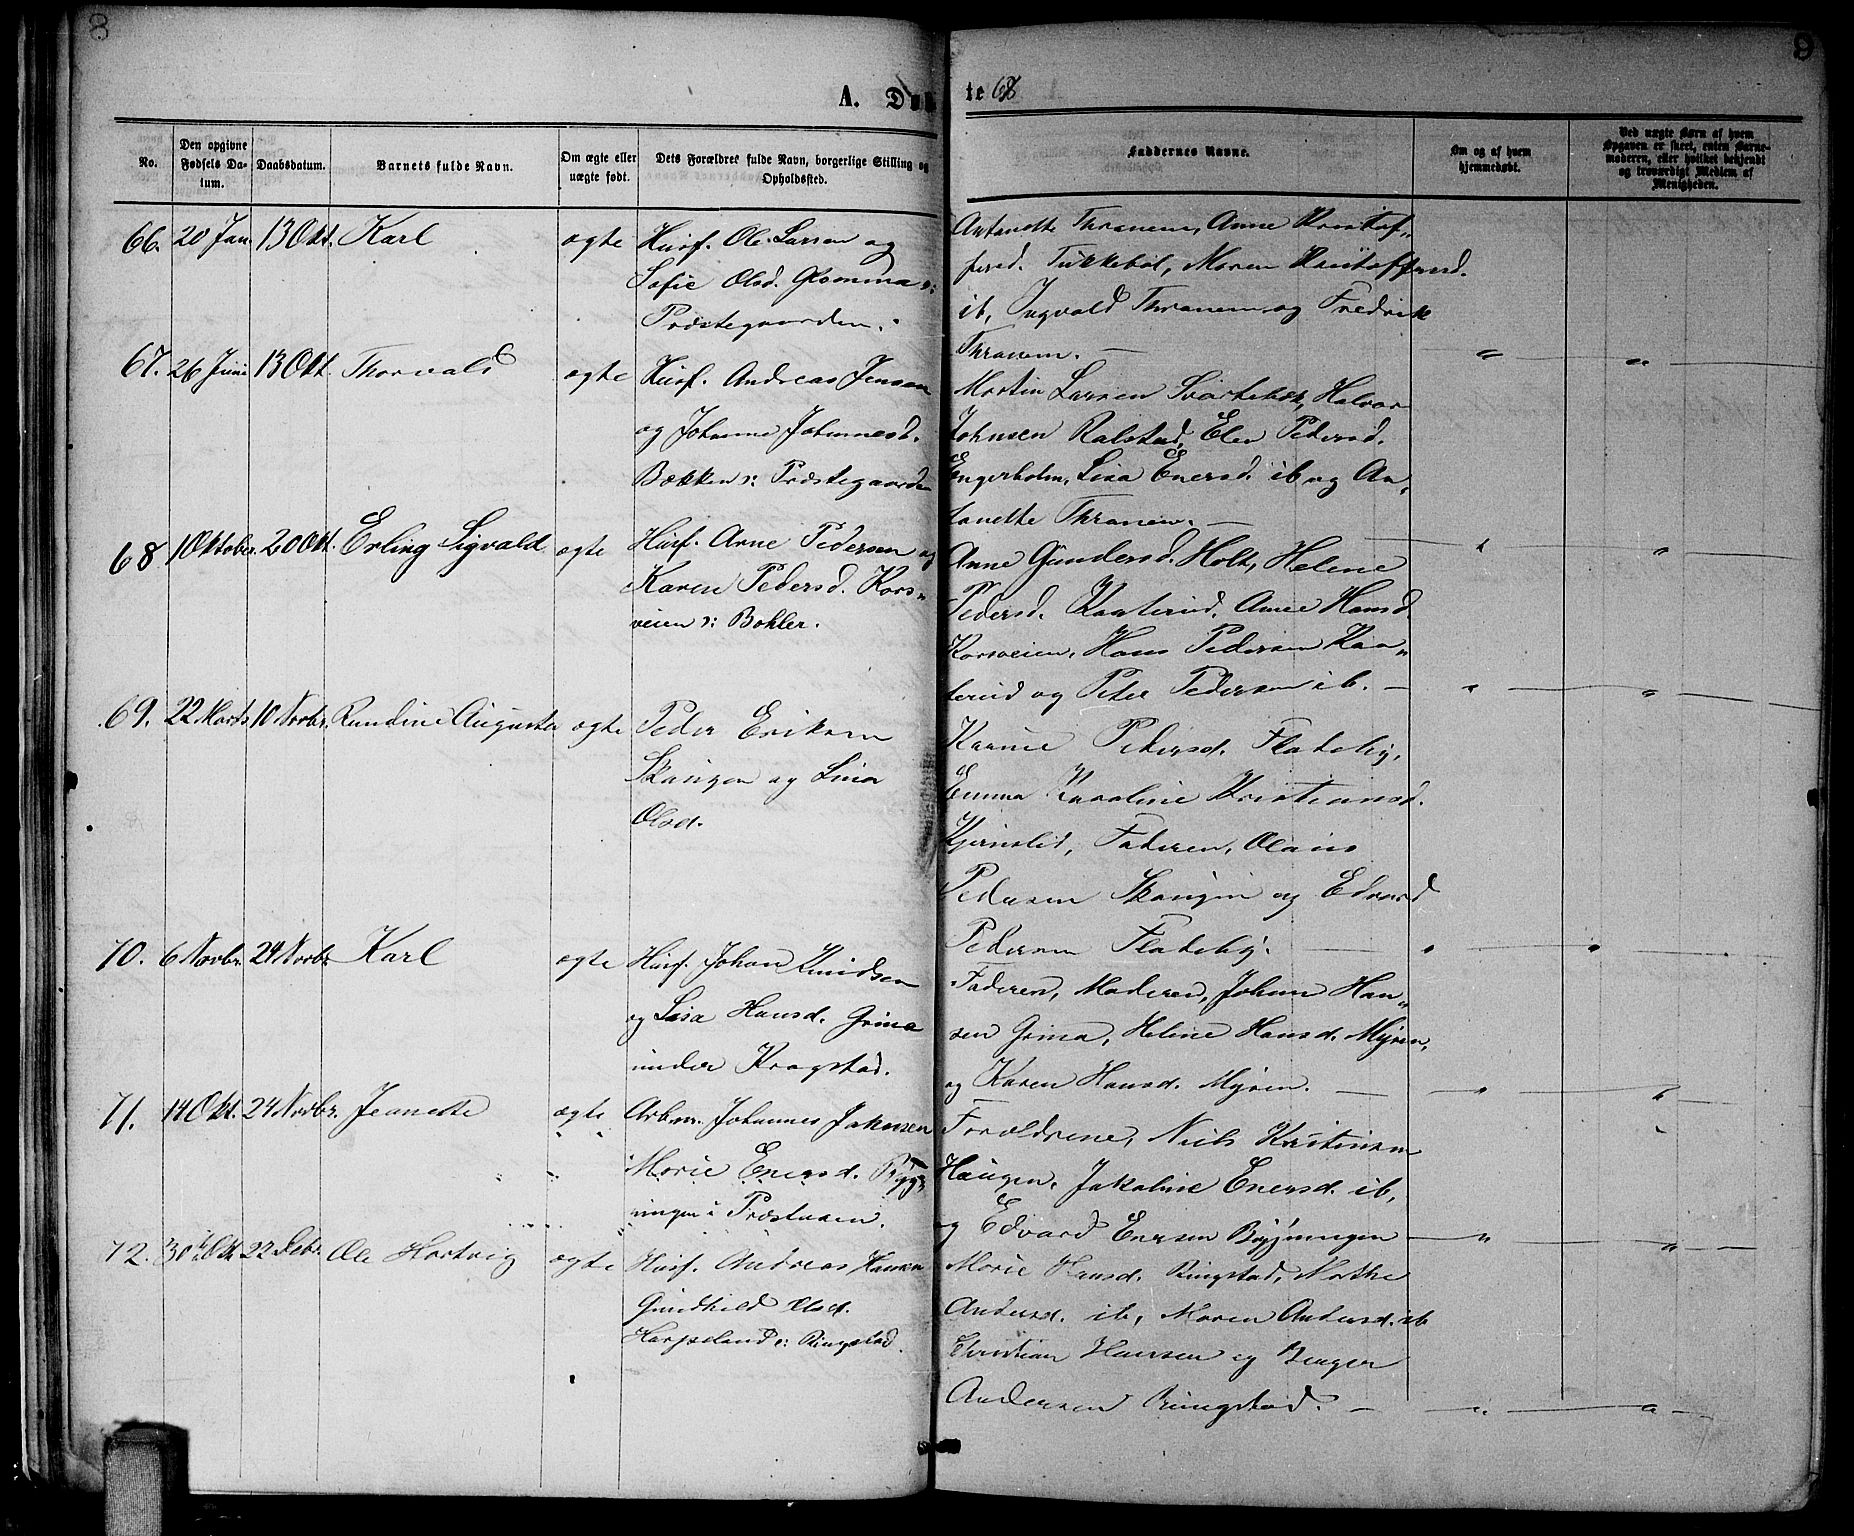 8
9
A. Døb
te 67
No.
Den opgivne Fødsels Datum.
Daabsdatum.
Barnets fulde Navn.
Om ægte eller uægte født.
Dets Forældres fulde Navn, borgerlige Stilling og Opholdssted.
Faddernes Navne.
Om og af hvem hjemmedøbt.
Ved uægte Børn af hvem Opgaven er skeet, enten Barnemoderen, eller hvilket bekjendt og troværdigt Medlem af Menigheden.
66. 20 Jan. 13 Okt. Karl ægte Husf. Ole Larsen og
Sofie Olsd. Glomma
Præstegaarden.
Antonette Thranem, Anne Kristof„
fersd. Tukkebøl, Maren Kristoffersd.
ib, Ingvald Thranem og Fredrik
Thranem. —
67. 26 Juni 13 Okt. Thorvald ægte Husf. Andreas Jensen
og Johanne Johannesd.
Bækken ɔ: Præstegaarden
Martin Larsen Svartebæk, Halvor
Johnsen Ralstad, Elen Pedersd.
Engerholm, Lisa Enersd. ib og An„
tonette Thranem. —
68. 1 Oktober. 20 Okt. Erling Sigvald ægte Husf. Arne Pedersen og
Karen Pedersd. Kors„
veien ɔ: Bøhler.
Anne Gundersd. Holt, Helene
Pedersd. Kaaterud, Anne Hansd.
Korsveien, Hans Pedersen Kaa„
terud og Peter Pedersen ib. —
69. 22 Marts 10 Novbr. Randine Augusta ægte Peder Eriksen
Skaugen og Lina
Olsd.
Karine Pedersd. Fladeby,
Emma Karoline Kristiansd.
Kjernslid, Faderen, Olaus
Pedersen Skaugen og Edvard
Pedersen Fladeby.
70. 6 Novbr. 24 Novbr. Karl ægte Husf. Johan Knudsen
og Lisa Hansd. Grina
under Kragstad.
Faderen, Moderen, Johan Han„
sen Grina, Helene Hansd. Myren,
og Karen Hansd. Myren. —
71. 14 Okt. 24 Novbr. Jeanette ægte Arbm. Johannes Jakobsen
Marie Enersd. Byg„
ningen i Præstuen.
Forældrene, Niels Kristiansen
Haugen, Jakobine Enersd. ib,
og Edvard Enersen Bygningen
72. 30 Okt. 22 Debr. Ole Hartvig ægte Husf. Andreas Hansen
Gundhild Olsd.
Harpeland ɔ: Ringstad.
Marie Hansd. Ringstad, Marthe
Andersd. ib, Maren Andersd. ib
Christian Hansen og
Andersen Ringstad. —